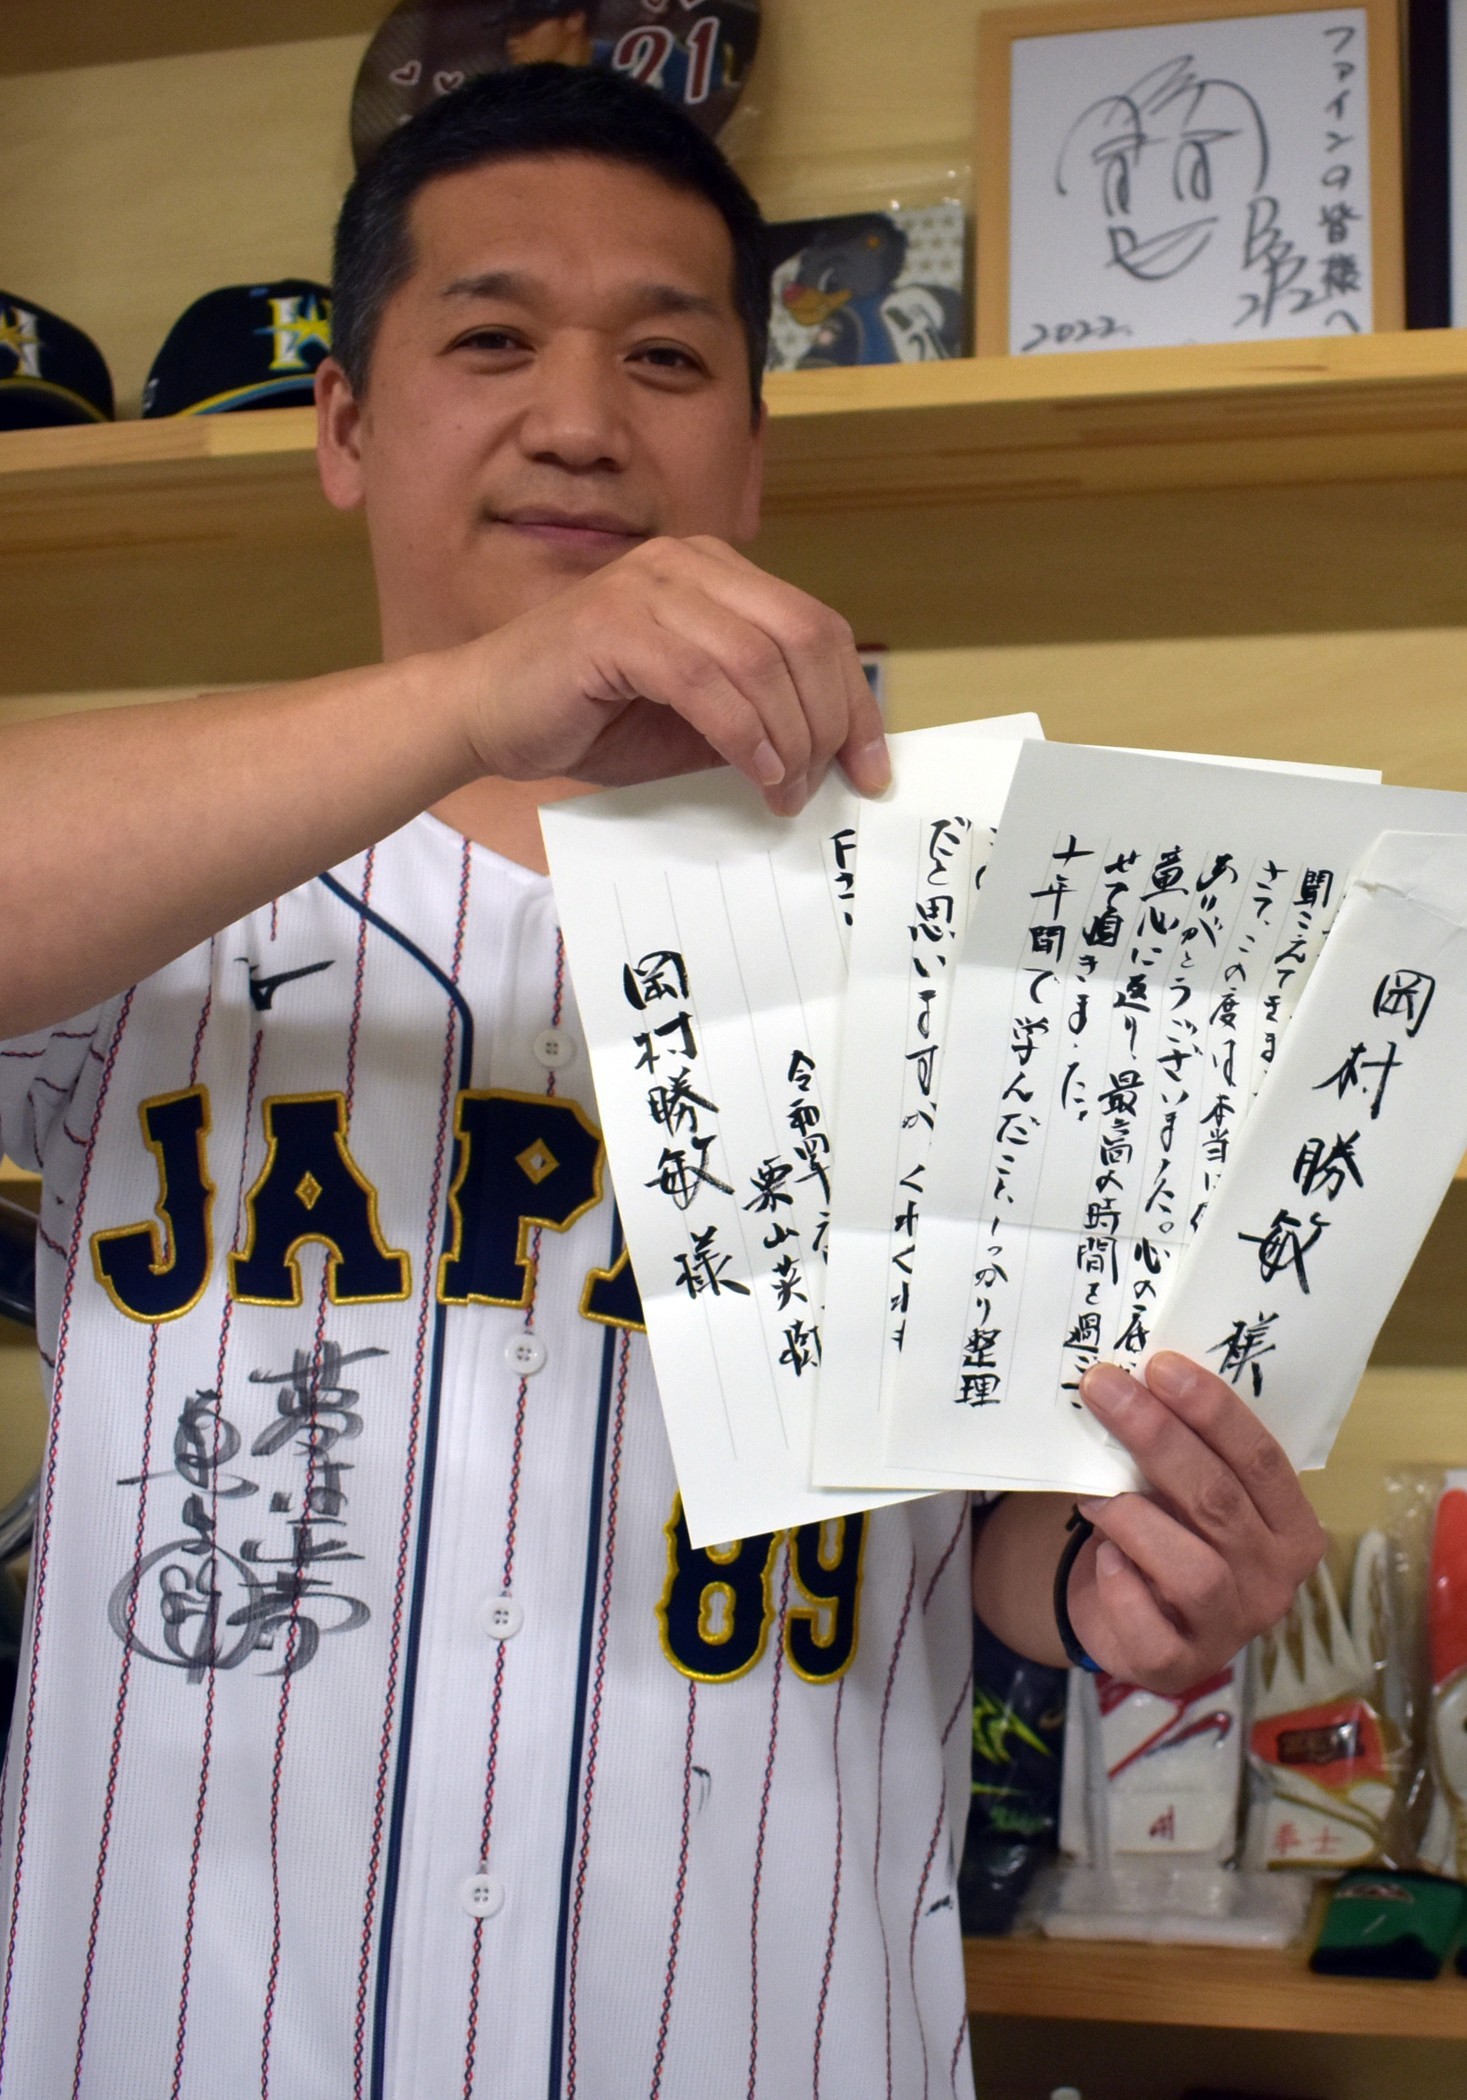 21
ファインの皆様へ
BB
2022.
H
JAPA
89
夢は正夢
岡村勝敏様
聞こえてきま
さて、この度は本当に
ありがとうございました。心の底
童心に返り、最高の時間を過ご
せて頂きました。
十年間で学んだこと、しっかり整理
だと思いますが、くれぐれ
下さい
令和四年
栗山英樹
岡村勝敏様